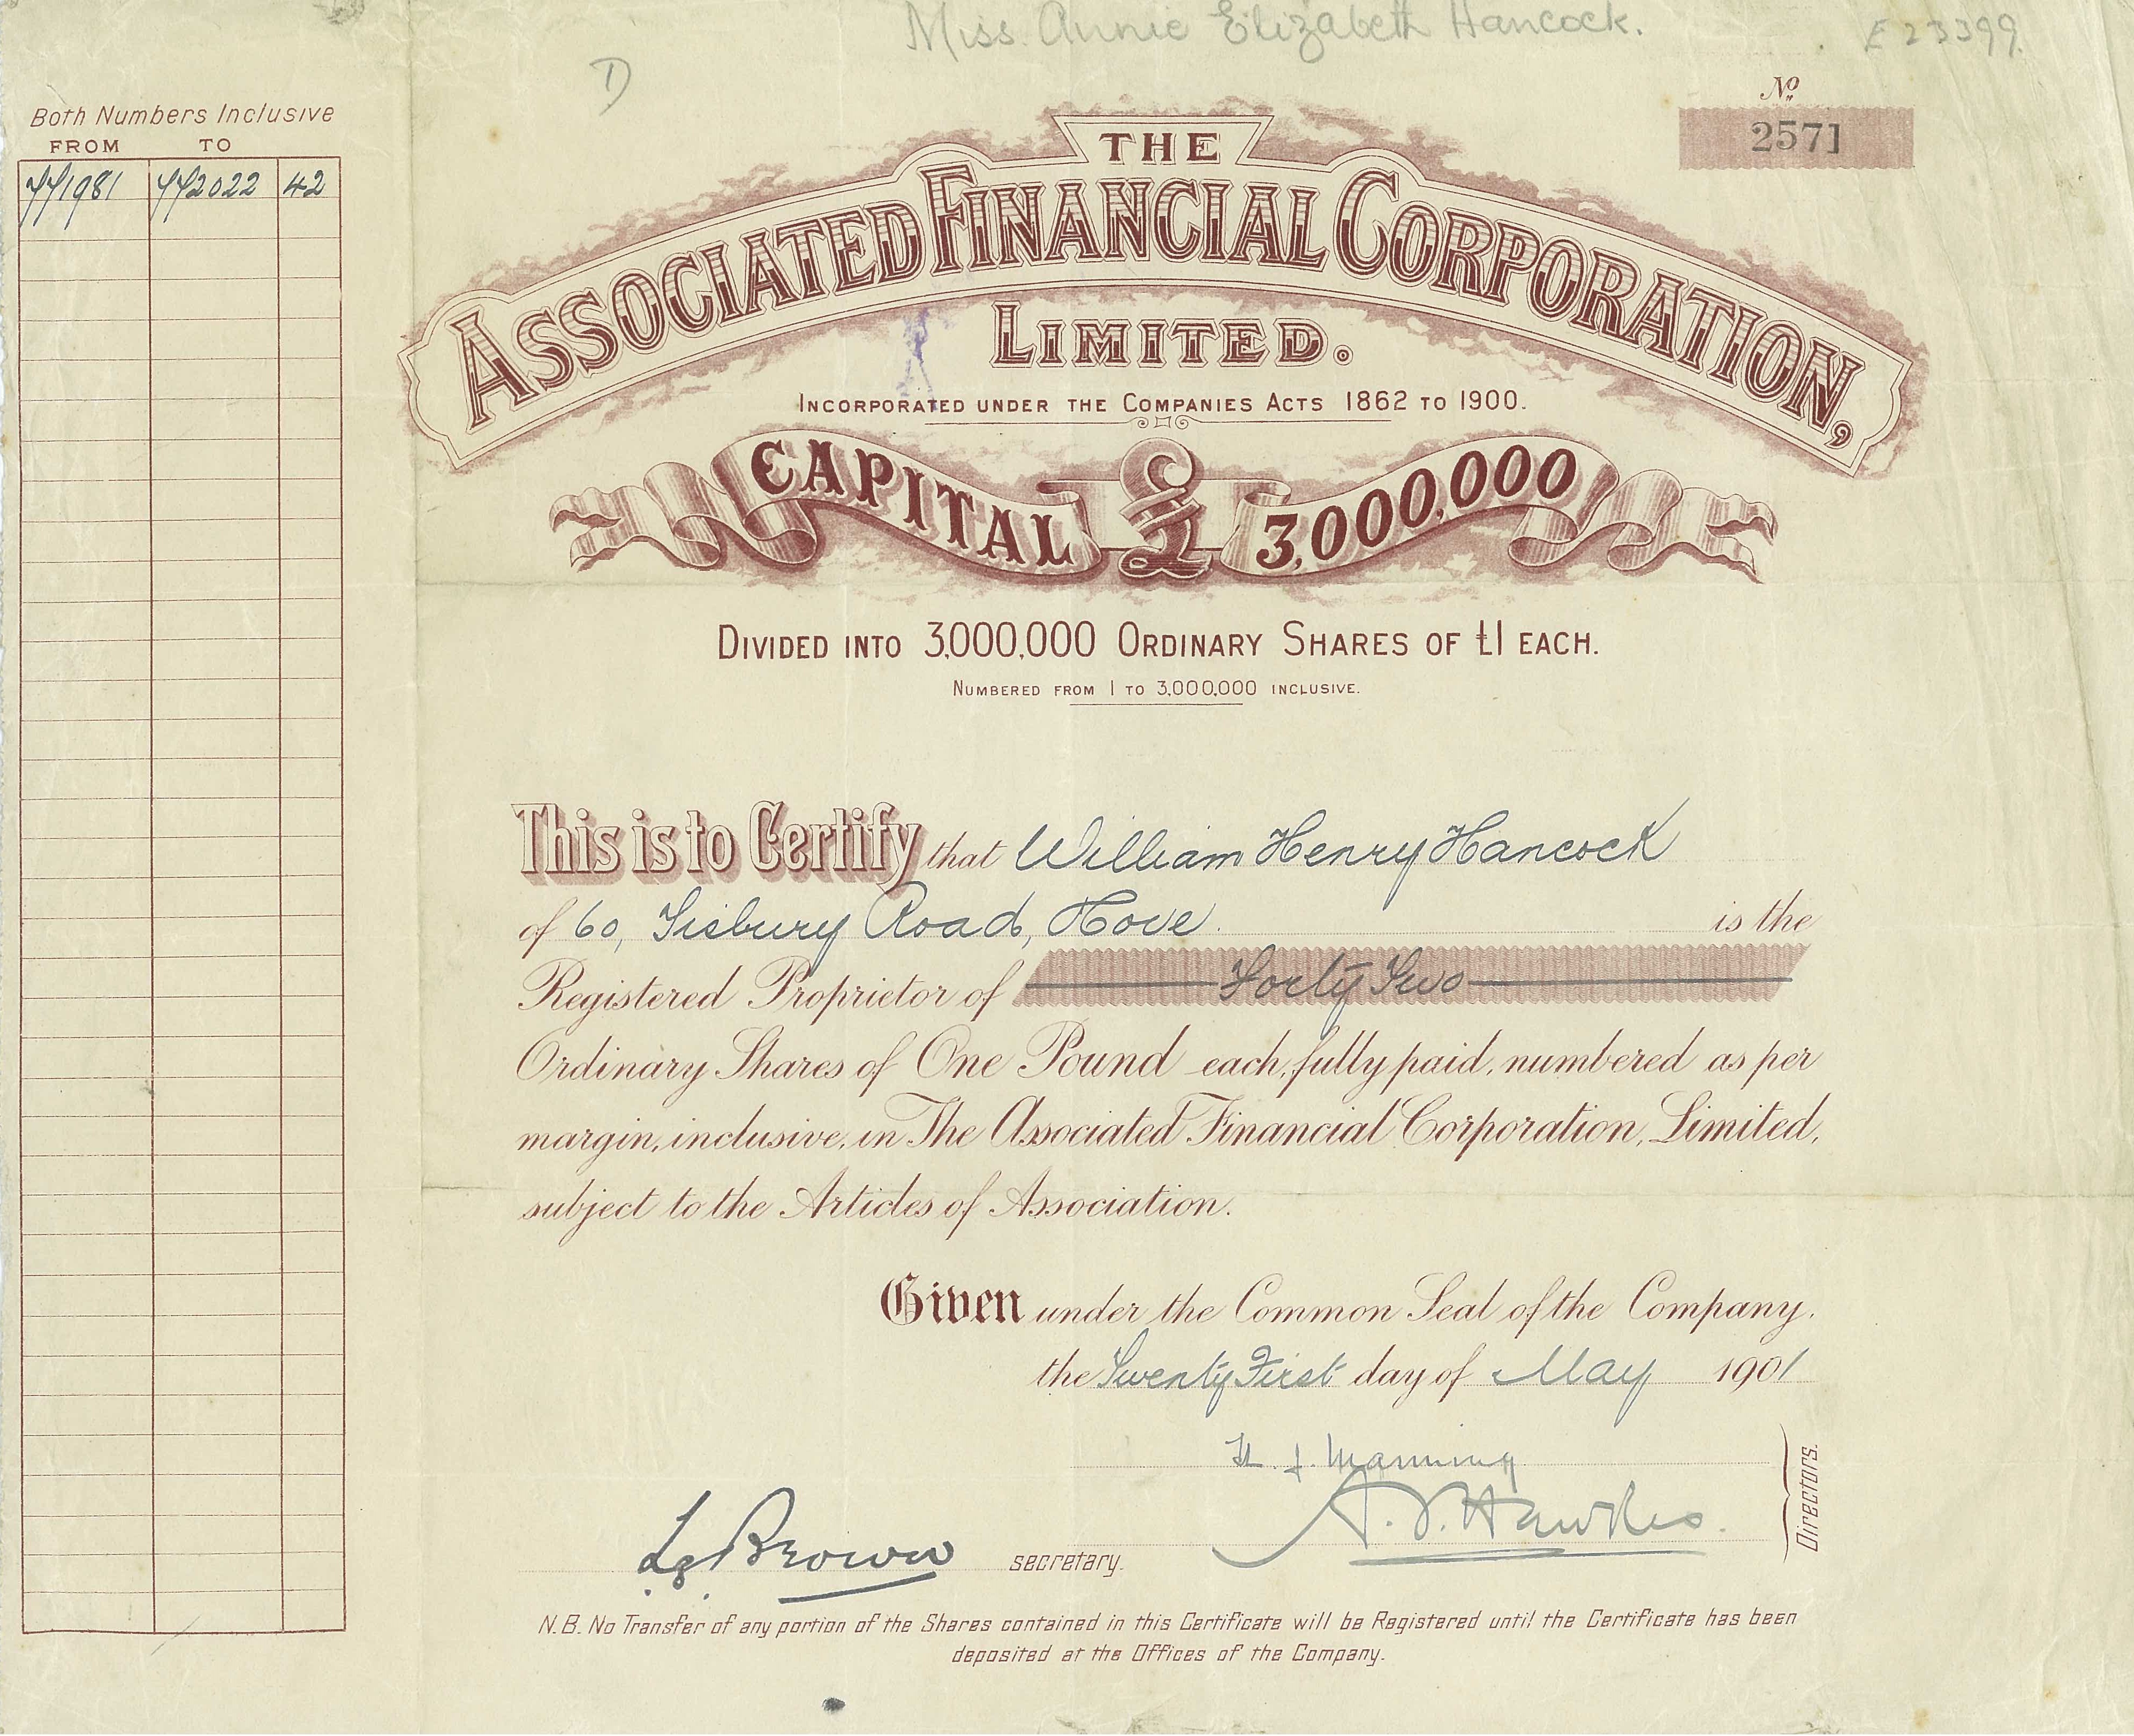 Miss. Annie Elizabeth Hancock.
E 23399.
D
Nº
2571
Both Numbers Inclusive
FROM TO
771981 772022 42
THE
ASSOCIATED FINANCIAL CORPORATION,
LIMITED.
INCORPORATED UNDER THE COMPANIES ACTS 1862 TO 1900.
CAPITAL £ 3,000,000
DIVIDED INTO 3,000,000 ORDINARY SHARES OF £1 EACH.
NUMBERED FROM 1 TO 3,000,000 INCLUSIVE.
This is to Certify that William Henry Hancock
of 60, Tisbury Road, Hove. is the
Registered Proprietor of Forty Two
Ordinary Shares of One Pound each, fully paid, numbered as per
margin, inclusive, in The Associated Financial Corporation, Limited,
subject to the Articles of Association.
Given under the Common Seal of the Company,
the Twenty First day of May 1901
H. J. Manning
A. J. Hawkes.
Directors.
Brown secretary.
N.B. No Transfer of any portion of the Shares contained in this Certificate will be Registered until the Certificate has been
deposited at the Offices of the Company.